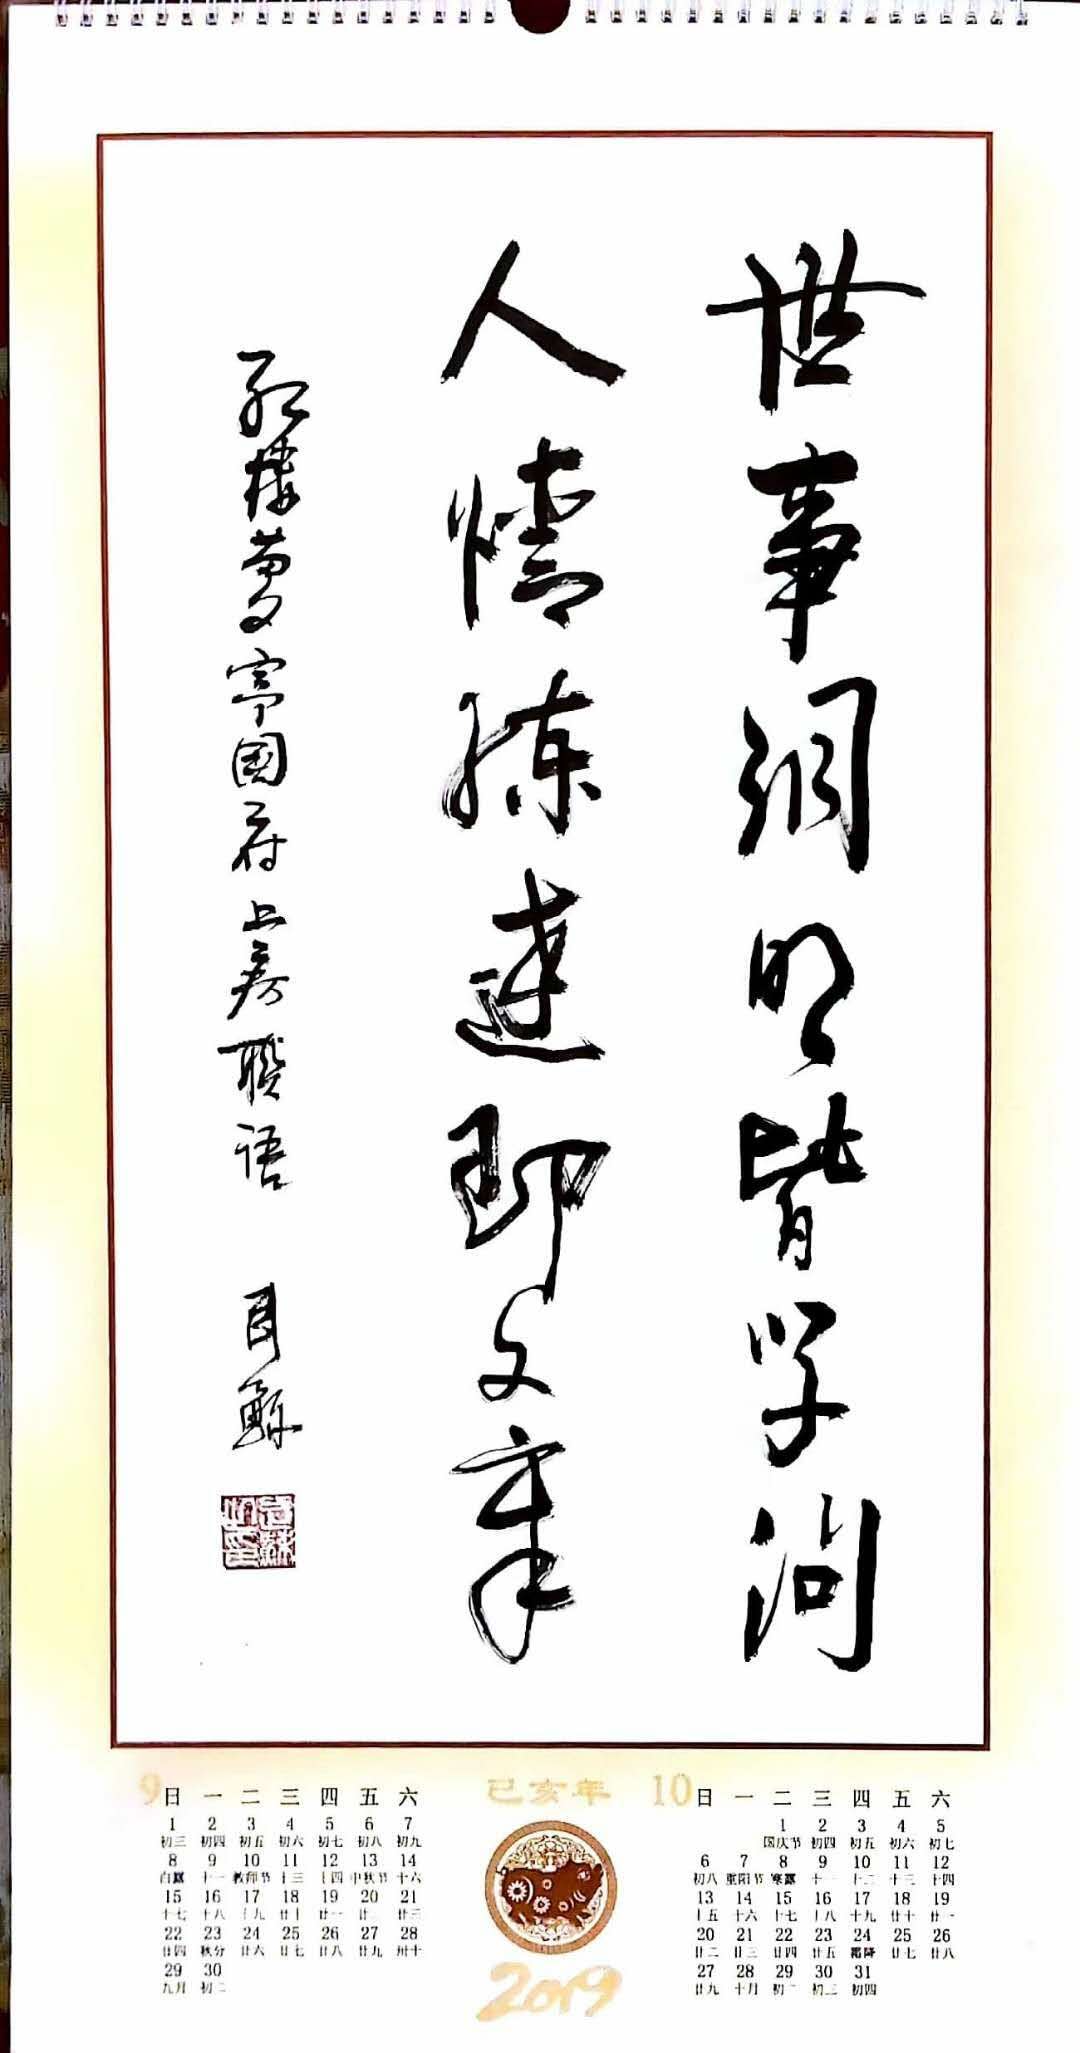 世事洞明皆学问
人情练达即文章
红楼梦宁国府上房联语
9 日 一 二 三 四 五 六
1 2 3 4 5 6 7
初三 初四 初五 初六 初七 初八 初九
8 9 10 11 12 13 14
白露 十一 教师节 十三 十四 中秋节 十六
15 16 17 18 19 20 21
十七 十八 十九 廿十 廿一 廿二 廿三
22 23 24 25 26 27 28
廿四 秋分 廿六 廿七 廿八 廿九 卅十
29 30
九月 初二
己亥年
2019
10 日 一 二 三 四 五 六
1 2 3 4 5
国庆节 初四 初五 初六 初七
6 7 8 9 10 11 12
初八 重阳节 寒露 十一 十二 十三 十四
13 14 15 16 17 18 19
十五 十六 十七 十八 十九 廿十 廿一
20 21 22 23 24 25 26
廿二 廿三 廿四 廿五 霜降 廿七 廿八
27 28 29 30 31
廿九 十月 初二 初三 初四